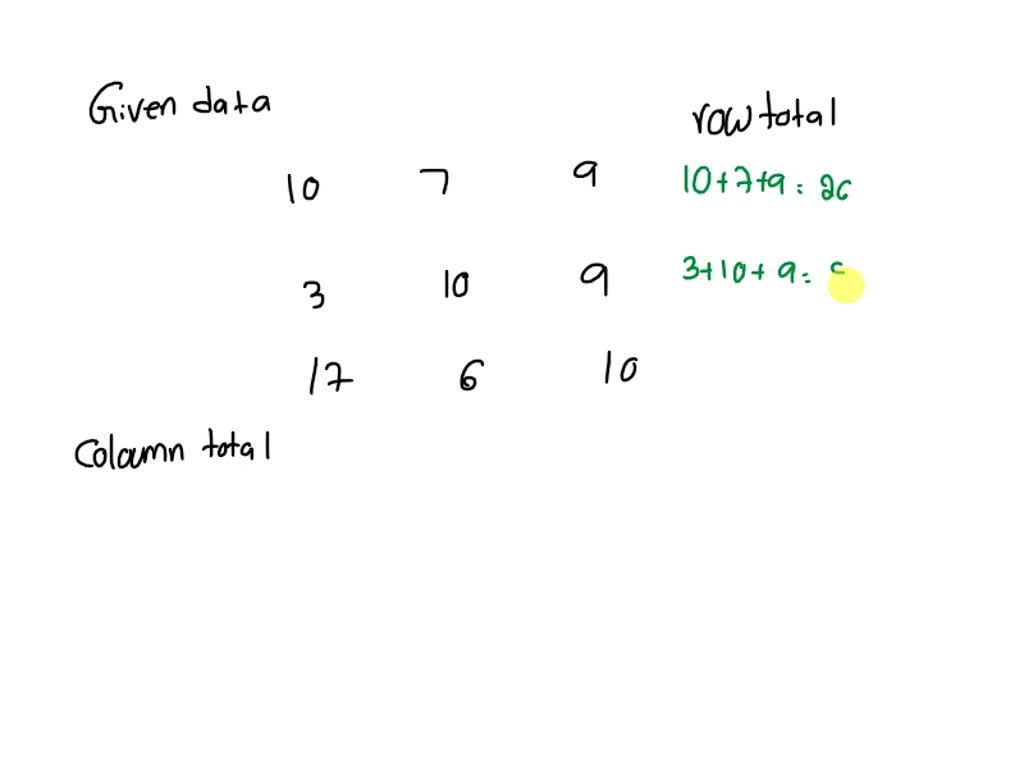 Given data
row total
10 7 9 10+7+9 = 26
3 10 9 3+10+9 =
17 6 10
Coloumn total